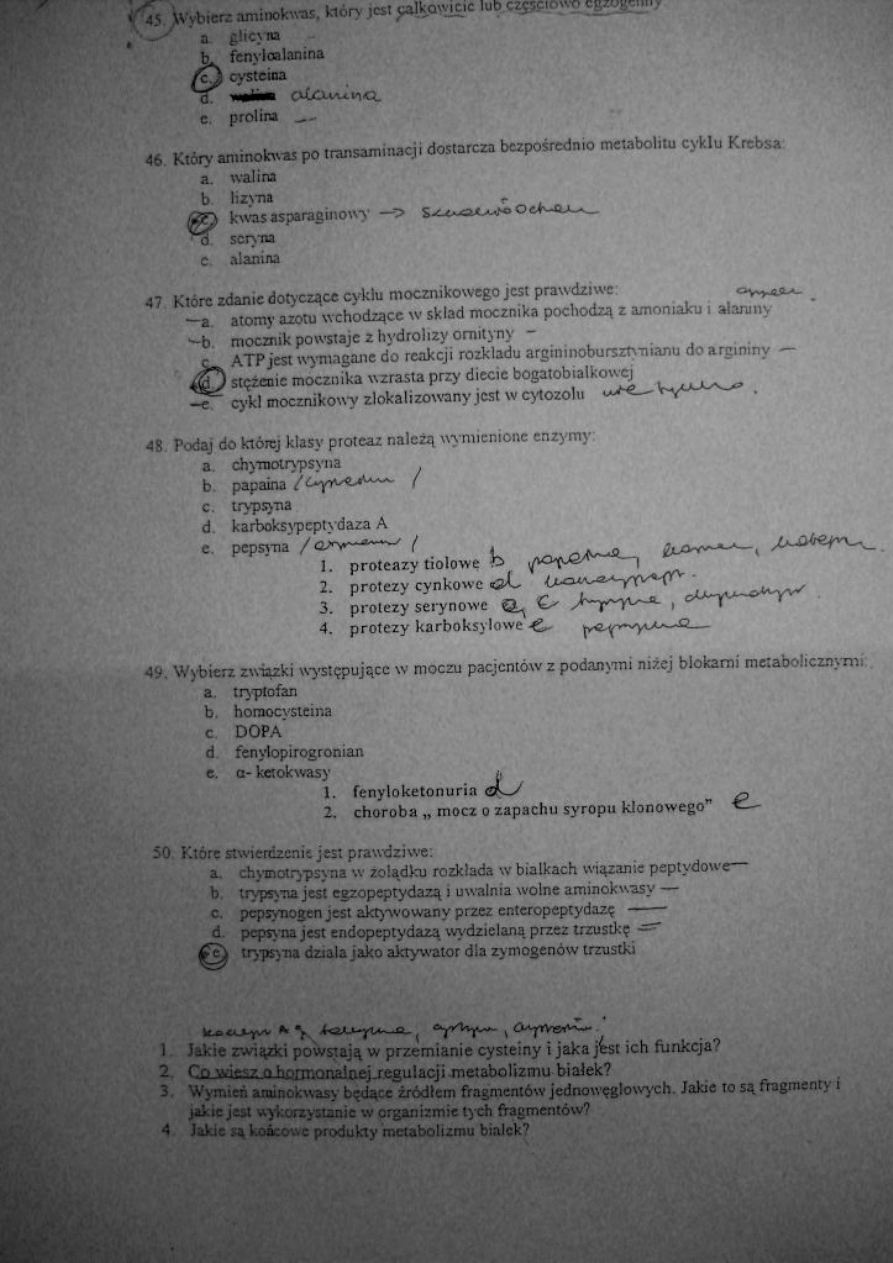 45. Wybierz aminokwas, który jest całkowicie lub częściowo egzogenny
a. glicyna
b. fenyloalanina
c. cysteina
d. alanina
e. prolina
46. Który aminokwas po transaminacji dostarcza bezpośrednio metabolitu cyklu Krebsa:
a. walina
b. lizyna
c. kwas asparaginowy → szczawiooctan
d. seryna
e. alanina
47. Które zdanie dotyczące cyklu mocznikowego jest prawdziwe:
a. atomy azotu wchodzące w skład mocznika pochodzą z amoniaku i alaniny
b. mocznik powstaje z hydrolizy ornityny
c. ATP jest wymagane do reakcji rozkładu argininobursztynianu do argininy
d. stężenie mocznika wzrasta przy diecie bogatobiałkowej
e. cykl mocznikowy zlokalizowany jest w cytozolu nie tylko.
48. Podaj do której klasy proteaz należą wymienione enzymy:
a. chymotrypsyna
b. papaina
c. trypsyna
d. karboksypeptydaza A
e. pepsyna
1. proteazy tiolowe b
2. protezy cynkowe d
3. protezy serynowe a, c
4. protezy karboksylowe e
49. Wybierz związki występujące w moczu pacjentów z podanymi niżej blokami metabolicznymi:
a. tryptofan
b. homocysteina
c. DOPA
d. fenylopirogronian
e. α- ketokwasy
1. fenyloketonuria d
2. choroba „ mocz o zapachu syropu klonowego” e
50. Które stwierdzenie jest prawdziwe:
a. chymotrypsyna w żołądku rozkłada w białkach wiązanie peptydowe
b. trypsyna jest egzopeptydazą i uwalnia wolne aminokwasy
c. pepsynogen jest aktywowany przez enteropeptydazę
d. pepsyna jest endopeptydazą wydzielaną przez trzustkę
e. trypsyna działa jako aktywator dla zymogenów trzustki
1. Jakie związki powstają w przemianie cysteiny i jaka jest ich funkcja?
2. Co wiesz o hormonalnej regulacji metabolizmu białek?
3. Wymień aminokwasy będące źródłem fragmentów jednowęglowych. Jakie to są fragmenty i
jakie jest wykorzystanie w organizmie tych fragmentów?
4. Jakie są końcowe produkty metabolizmu białek?